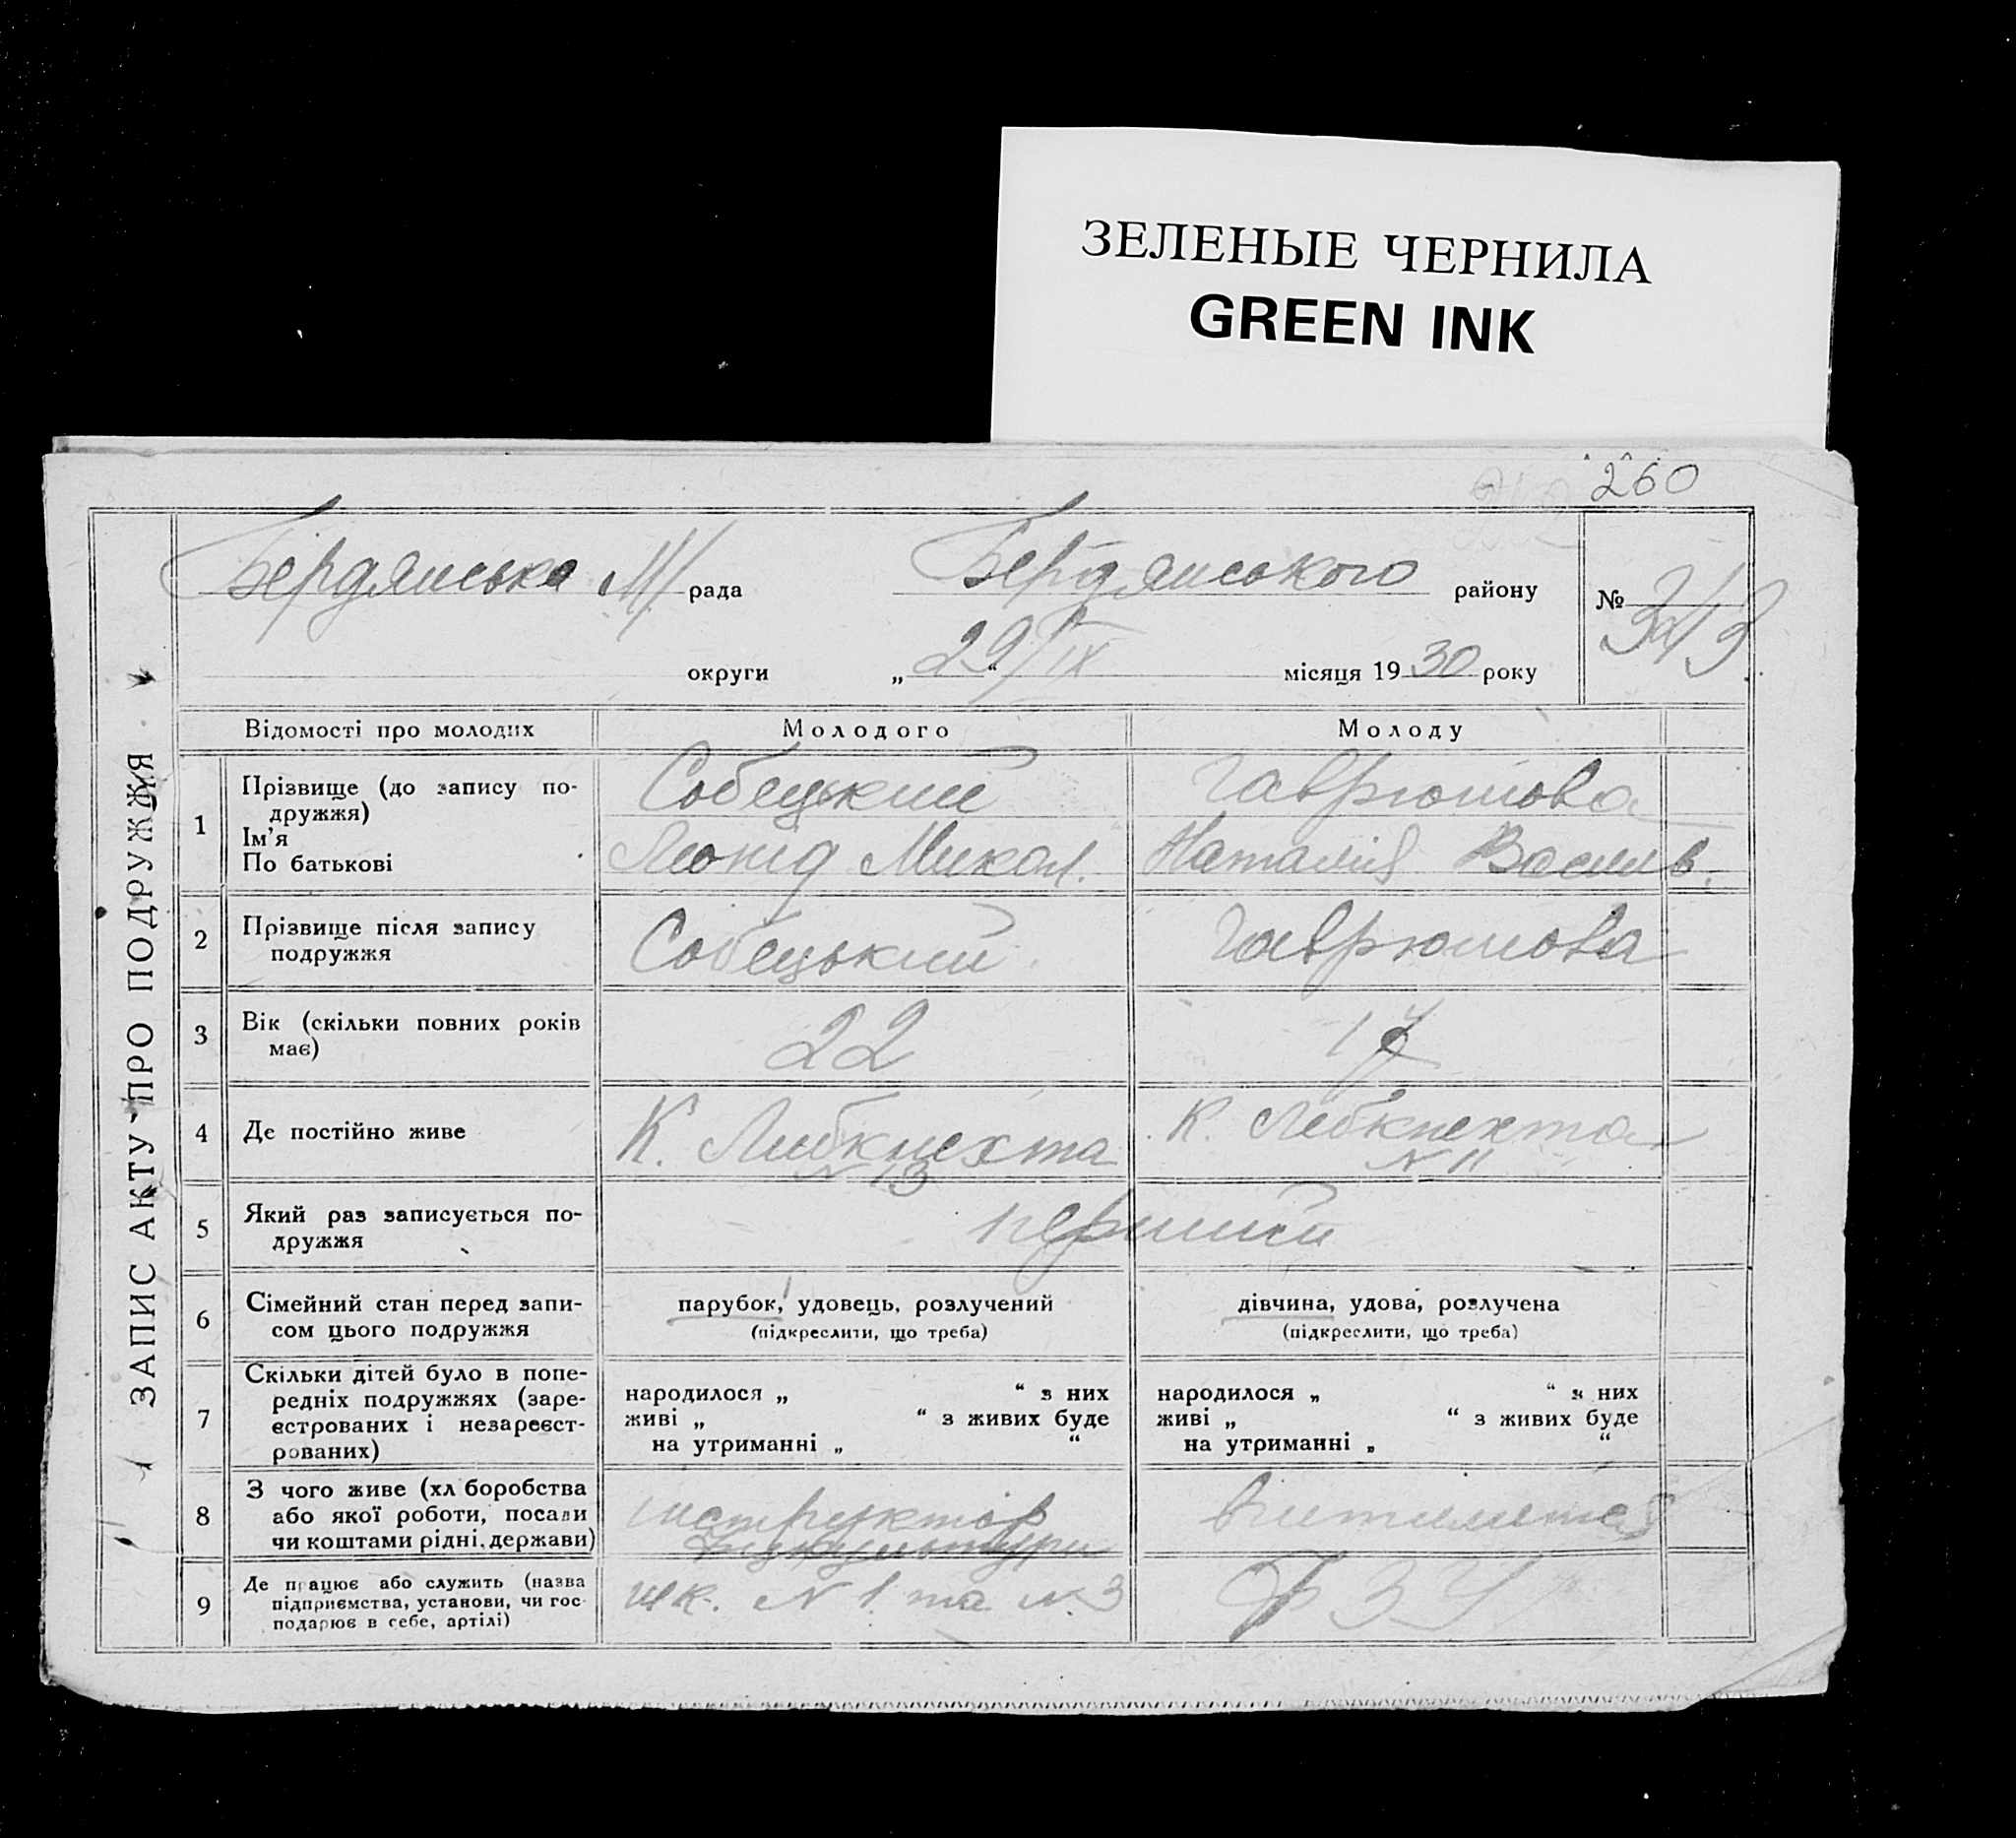 ЗЕЛЕНЫЕ ЧЕРНИЛА
GREEN INK
260
ЗАПИС АКТУ ПРО ПОДРУЖЖЯ
Бердянська М/ рада Бердянського району №
округи „29/IX“ місяця 1930 року
Відомості про молодих Молодого Молоду
1 Прізвище (до запису по-
дружжя)
Ім'я
По батькові
Собецький
Леонід Микол.
Гаврюшова
Наталія Васильв.
2 Прізвище після запису
подружжя
Собецький
Гаврюшова
3 Вік (скільки повних років
має)
22
4 Де постійно живе
К. Либкнехта
N 13
К. Лебкнехта
N 11
5 Який раз записується по-
дружжя
перший
6 Сімейний стан перед запи-
сом цього подружжя
парубок, удовець, розлучений
(підкреслити, що треба)
дівчина, удова, розлучена
(підкреслити, що треба)
7 Скільки дітей було в попе-
редніх подружжях (заре-
єстрованих і незареєст-
рованих)
народилося „ “ з них
живі „ “ з живих буде
на утриманні „ “
народилося „ “ з них
живі „ “ з живих буде
на утриманні „ “
8 З чого живе (хліборобства
або якої роботи, посади
чи коштами рідні, держави)
інструктор
фізкультури
9 Де працює або служить (назва
підприємства, установи, чи гос-
подарює в себе, артілі)
шк. N 1 та N 3
ФЗУ